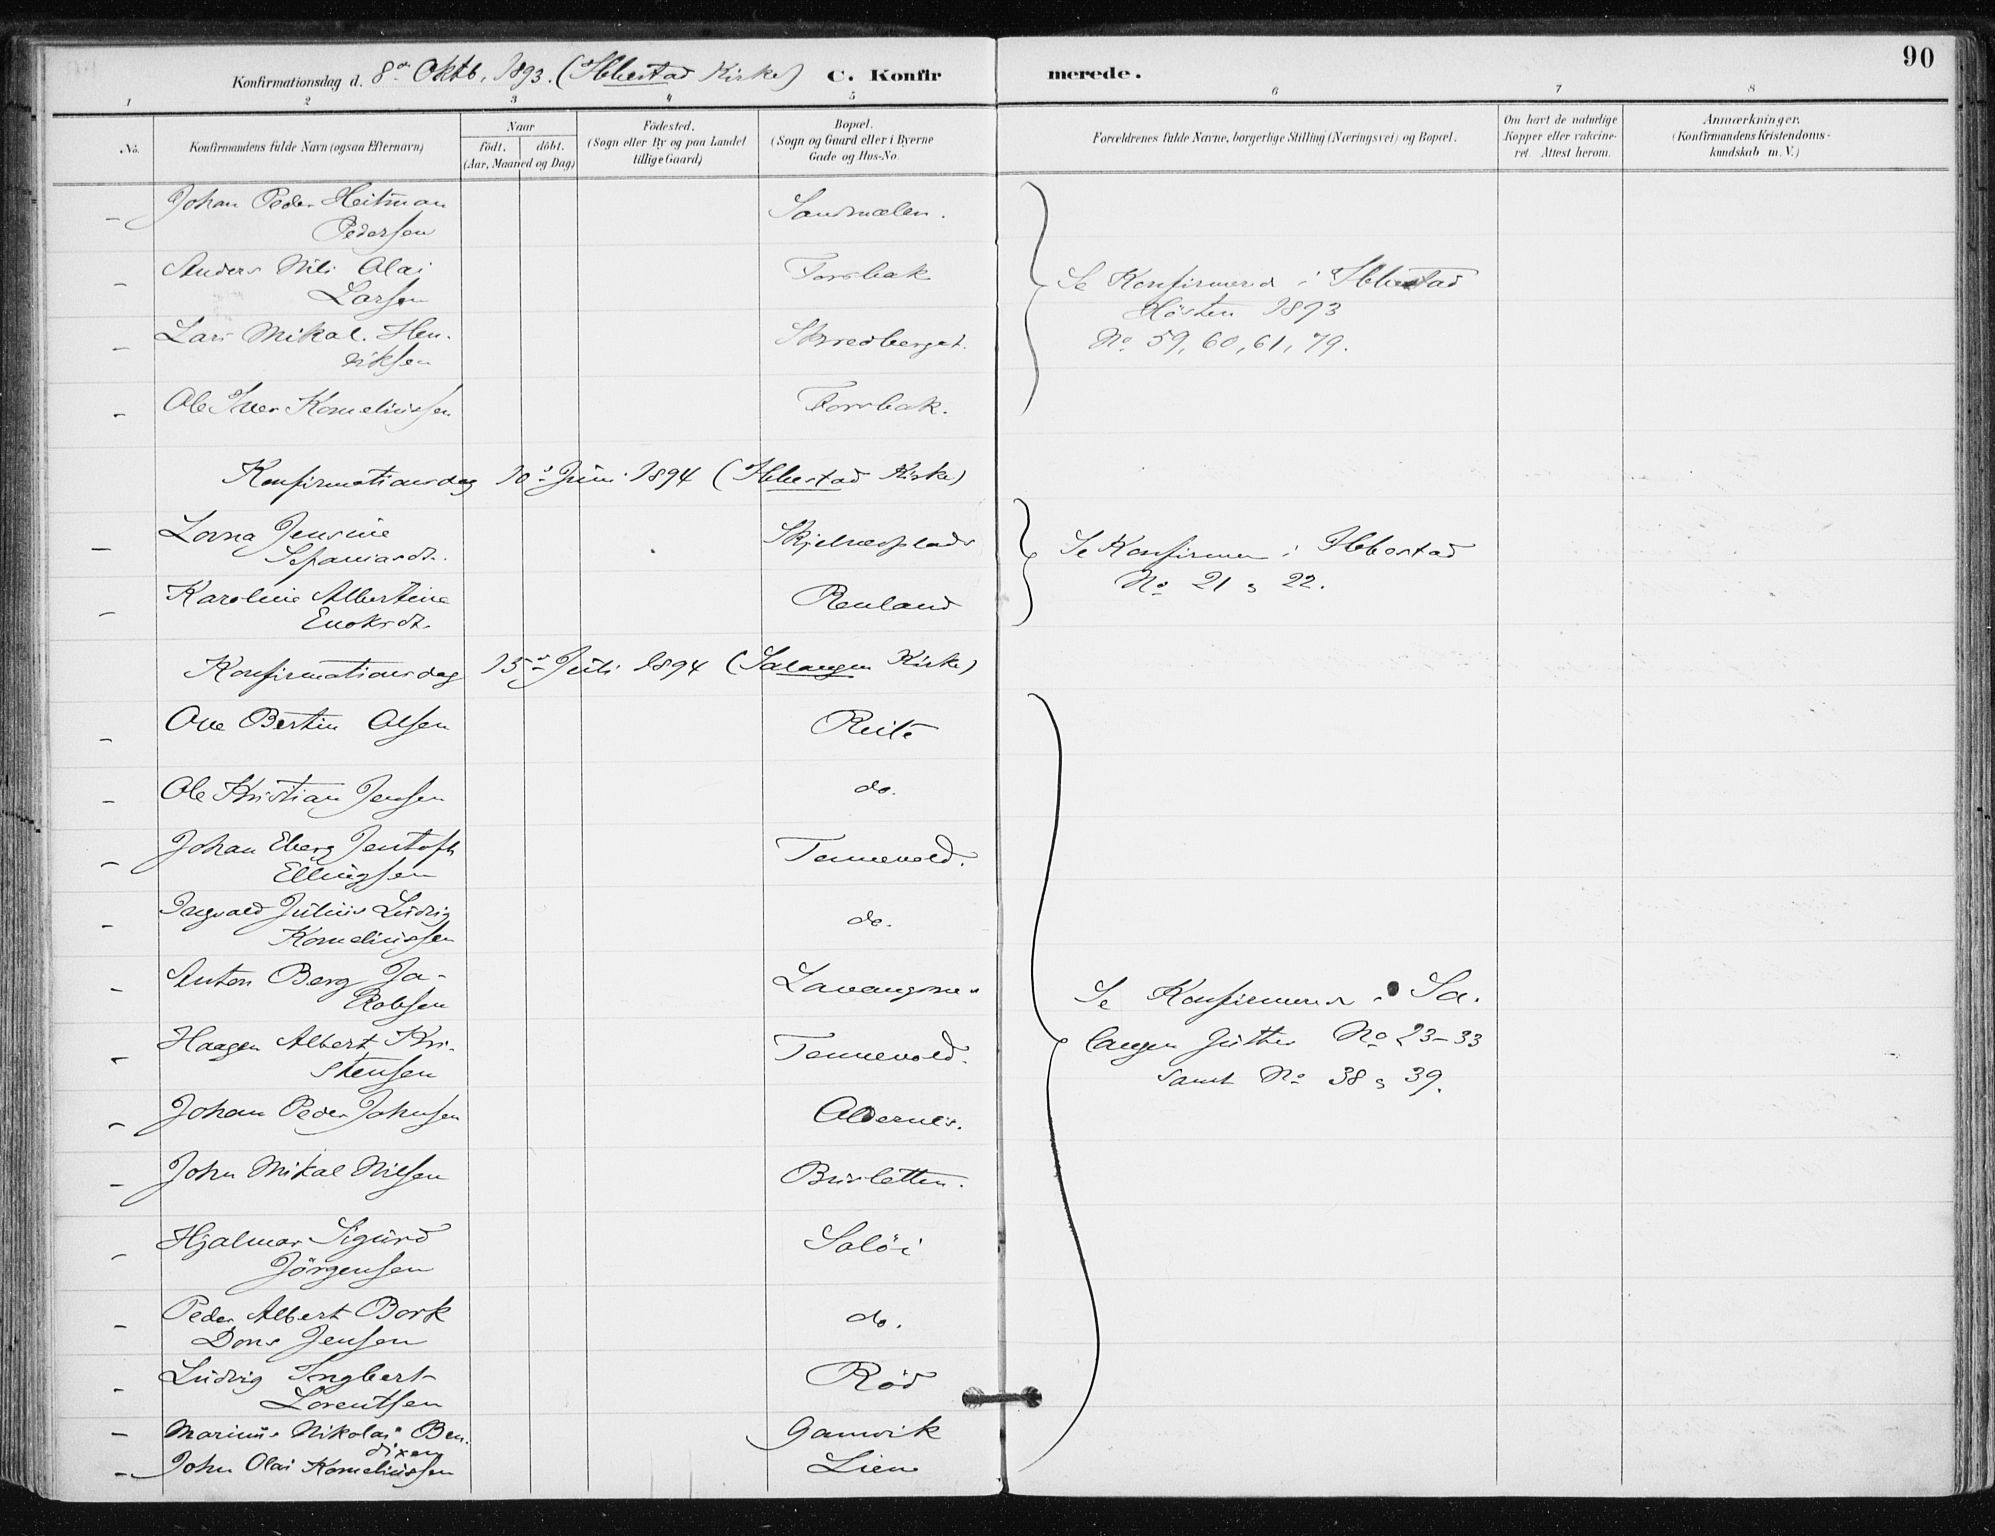 90
Konfirmationsdag d. 8de Oktb. 1893. (Ibbestad Kirke) C. Konfirmerede.
1 2 3 4 5 6 7 8
No.
Konfirmandens fulde Navn (ogsaa Efternavn)
Naar
født. døbt.
(Aar, Maaned og Dag)
Fødested.
(Sogn eller By og paa Landet
tillige Gaard)
Bopæl.
(Sogn og Gaard eller i Byerne
Gade og Hus-No.
Forældrenes fulde Navne, borgerlige Stilling (Næringsvei) og Bopæl.
Om havt de naturlige
Kopper eller vakcine-
ret. Attest herom.
Anmærkninger.
(Konfirmandens Kristendoms-
kundskab m. V.)
- Johan Peder Heitman
Pedersen Sandmælen.
- Anders Nils Olai
Larsen Forsbak
- Lars Mikal Hen-
riksen Skredberget.
- Ole Iver Korneliussen Forsbak.
Se Konfirmered i Ibbestad
Hösten 1893
No 59, 60, 61, 79.
Konfirmationsdag 10de Juni 1894 (Ibbestad Kirke)
- Lovna Jensine
Sefaniasdt.
- Karoline Albertine
Enoksdt. Renland
Se Konfirmer i Ibbestad
No 21 & 22.
Konfirmationsdag 15de Juli 1894 (Salangen Kirke)
- Ove Bertin Olsen Reite
- Ole Kristian Jensen do.
- Johan Eberg Jentoft
Ellingsen Tennevold.
- Ingvald Julius Ludvig
Korneliussen do.
- Anton Berg Ja-
kobsen Lavangsnes
- Haagen Albert Kri-
stensen Tennevold.
- Johan Peder Johnsen Aldernes.
- John Mikal Nilsen Brisletten.
- Hjalmar Sigurd
Jörgensen Salöi
- Peder Albert Bork
Dons Jensen do.
- Ludvig Ingbert
Lorentsen Röd
- Marius Nikolai Ben-
dixen Gamvik
- John Olai Korneliussen Lien
Se Konfirmered i Sa-
langen Gutter No 23-33
samt No 38 & 39.